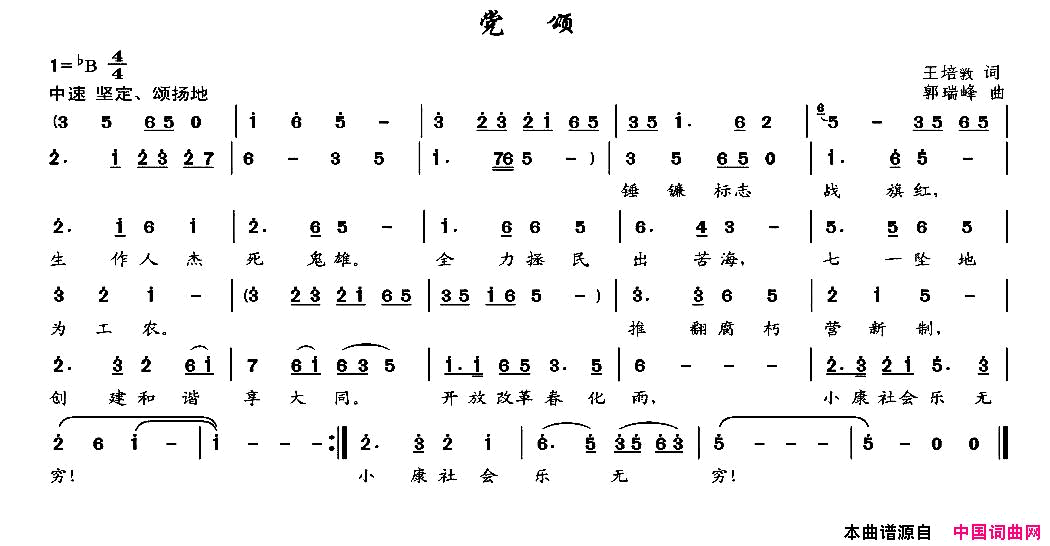 党 颂
1=♭B 4/4
王培敩 词
中速 坚定、颂扬地
郭瑞峰 曲
(3 5 6 5 0 | i 6 5 - | 3 2 3 2 i 6 5 | 3 5 i. 6 2 | 6 5 - 3 5 6 5 |
2. i 2 3 2 7 | 6 - 3 5 | i. 7 6 5 - ) | 3 5 6 5 0 | i. 6 5 - |
锤 镰 标志 战 旗 红,
2. i 6 i | 2. 6 5 - | i. 6 5 5 | 6. 4 3 - | 5. 5 6 5 |
生 作 人 杰 死 鬼 雄。 全 力 拯 民 出 苦 海, 七 一 坠 地
3 2 i - | (3 2 3 2 i 6 5 | 3 5 i 6 5 - ) | 3. 3 6 5 | 2 i 5 - |
为 工 农。 推 翻 腐 朽 营 新 制,
2. 3 2 6 i | 7 6 i 6 3 5 | i. i 6 5 3. 5 | 6 - - - | 2. 3 2 i 5. 5 |
创 建 和 谐 享 大 同。 开 放 改 革 春 化 雨, 小 康 社 会 乐 无
2 6 i - | i - - - :‖ 2. 3 2 i | 6. 5 3 5 6 3 | 5 - - - | 5 - 0 0 ‖
穷! 小 康 社 会 乐 无 穷!
本曲谱源自 中国词曲网